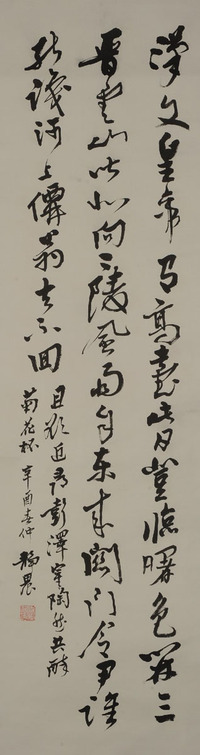 漢文皇帝有高臺此日登臨曙色開三
晉雲山皆北向二陵風雨自東來關門令尹誰
能識河上僊翁去不回且欲近尋彭澤宰陶然共醉
菊花杯 辛酉春仲 靜農